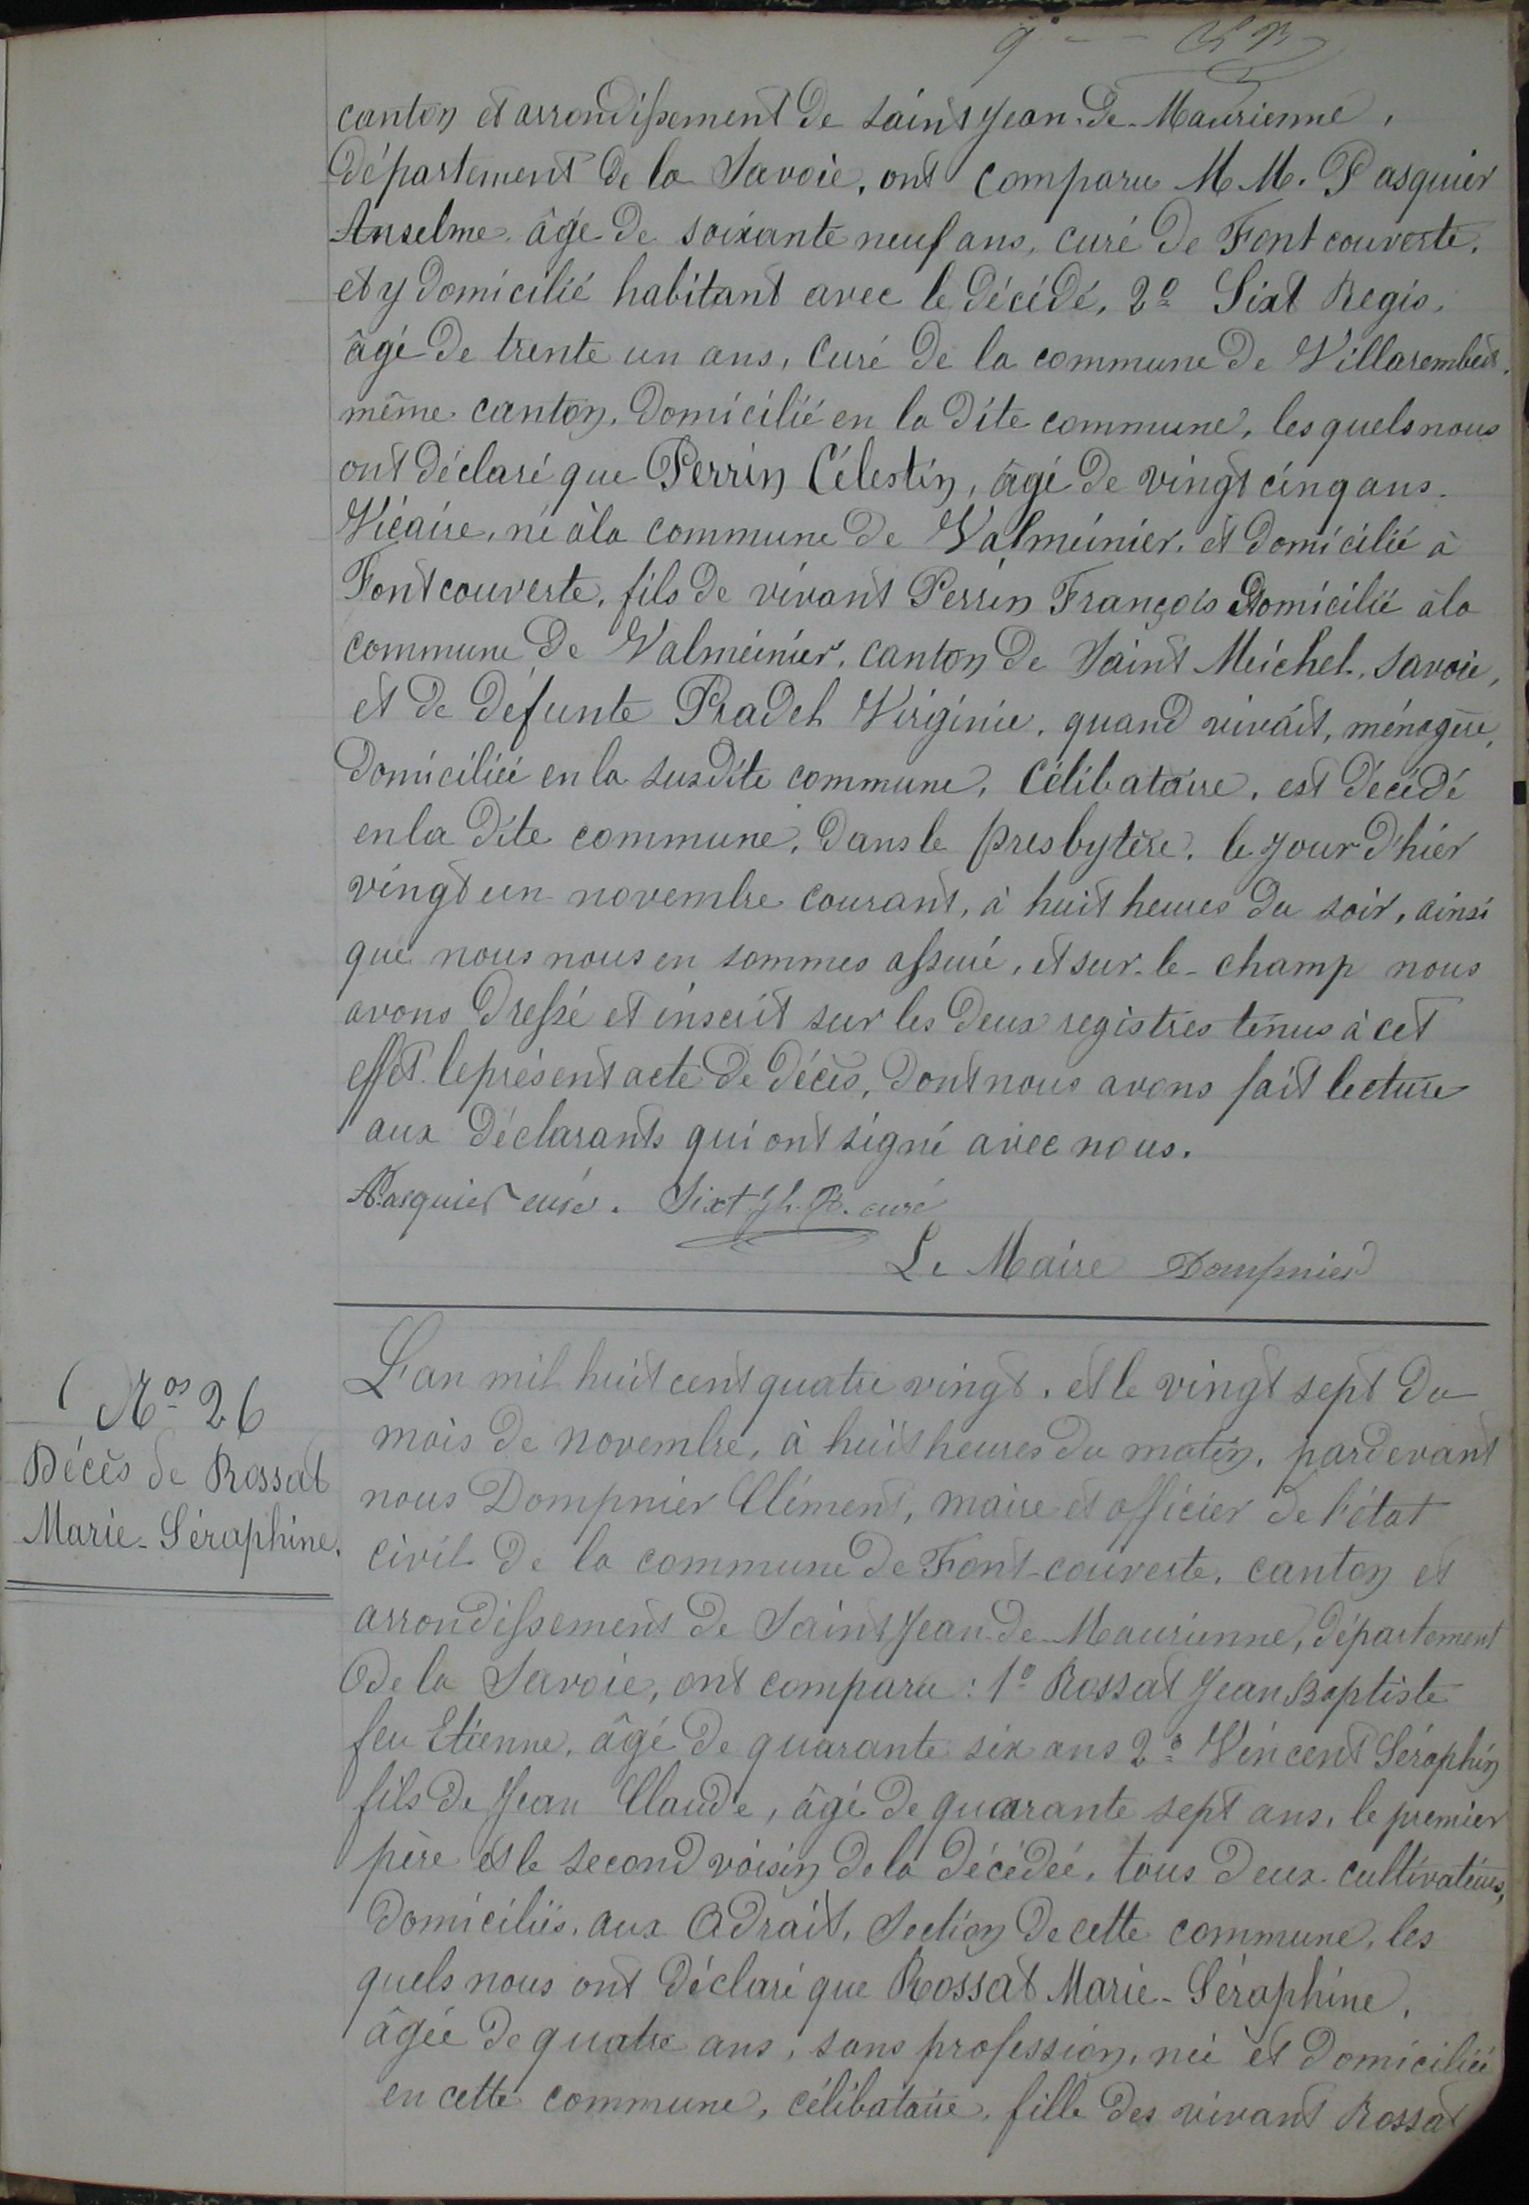 canton et arrondissement de Saint Jean-de-Maurienne,
département de la Savoie, ont comparu MM. Pasquier
Anselme âgé de soixante neuf ans, curé de Fontcouverte,
et y domicilié habitant avec le décédé, 2º Sixt Regis,
âgé de trente un ans, curé de la commune de Villarembert,
même canton, domicilié en la dite commune, les quels nous
ont déclaré que Perrin Célestin, âgé de vingt cinq ans,
Vicaire, né à la commune de Valmeinier, et domicilié à
Fontcouverte, fils de vivant Perrin François domicilié à la
commune de Valmeinier, canton de Saint Meichel, Savoie,
et de défunte Pradel Virginie, quand vivait, ménagère,
domiciliée en la susdite commune, célibataire, est décédé
en la dite commune, dans le presbytère, le jour d'hier
vingt un novembre courant, à huit heures du soir, ainsi
que nous nous en sommes assuré, et sur-le-champ nous
avons dressé et inscrit sur les deux registres tenus à cet
effet le présent acte de décès, dont nous avons fait lecture
aux déclarants qui ont signé avec nous.
Pasquier curé. Sixt Jh. R. curé
Le Maire Dompnier
Nos 26
Décès de Rossat
Marie-Séraphine.
L'an mil huit cent quatre vingt, et le vingt sept du
mois de novembre, à huit heures du matin, pardevant
nous Dompnier Clément, maire et officier de l'état
civil de la commune de Font-couverte, canton et
arrondissement de Saint Jean-de-Maurienne, département
de la Savoie, ont comparu : 1º Rossat Jean Baptiste
feu Etienne, âgé de quarante six ans 2º Vincent Séraphin
fils de Jean Claude, âgé de quarante sept ans, le premier
père et le second voisin de la décédée, tous deux cultivateurs,
domiciliés, aux Adrait, Section de cette commune, les
quels nous ont déclaré que Rossat Marie-Séraphine,
âgée de quatre ans, sans profession, née et domiciliée
en cette commune, célibataire, fille des vivant Rossat